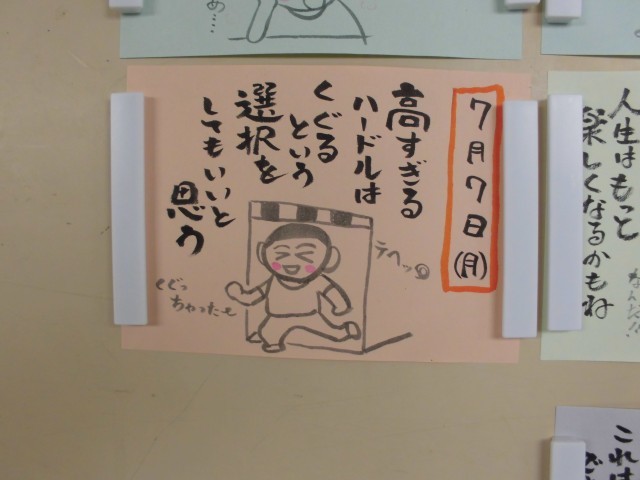 7月7日(月)
高すぎる
ハードルは
くぐる
という
選択を
しても いいと
思う
テヘッ
くぐっ
ちゃったも
人生はもっと
楽しくなるかもね
なんだ!!
これは
め…